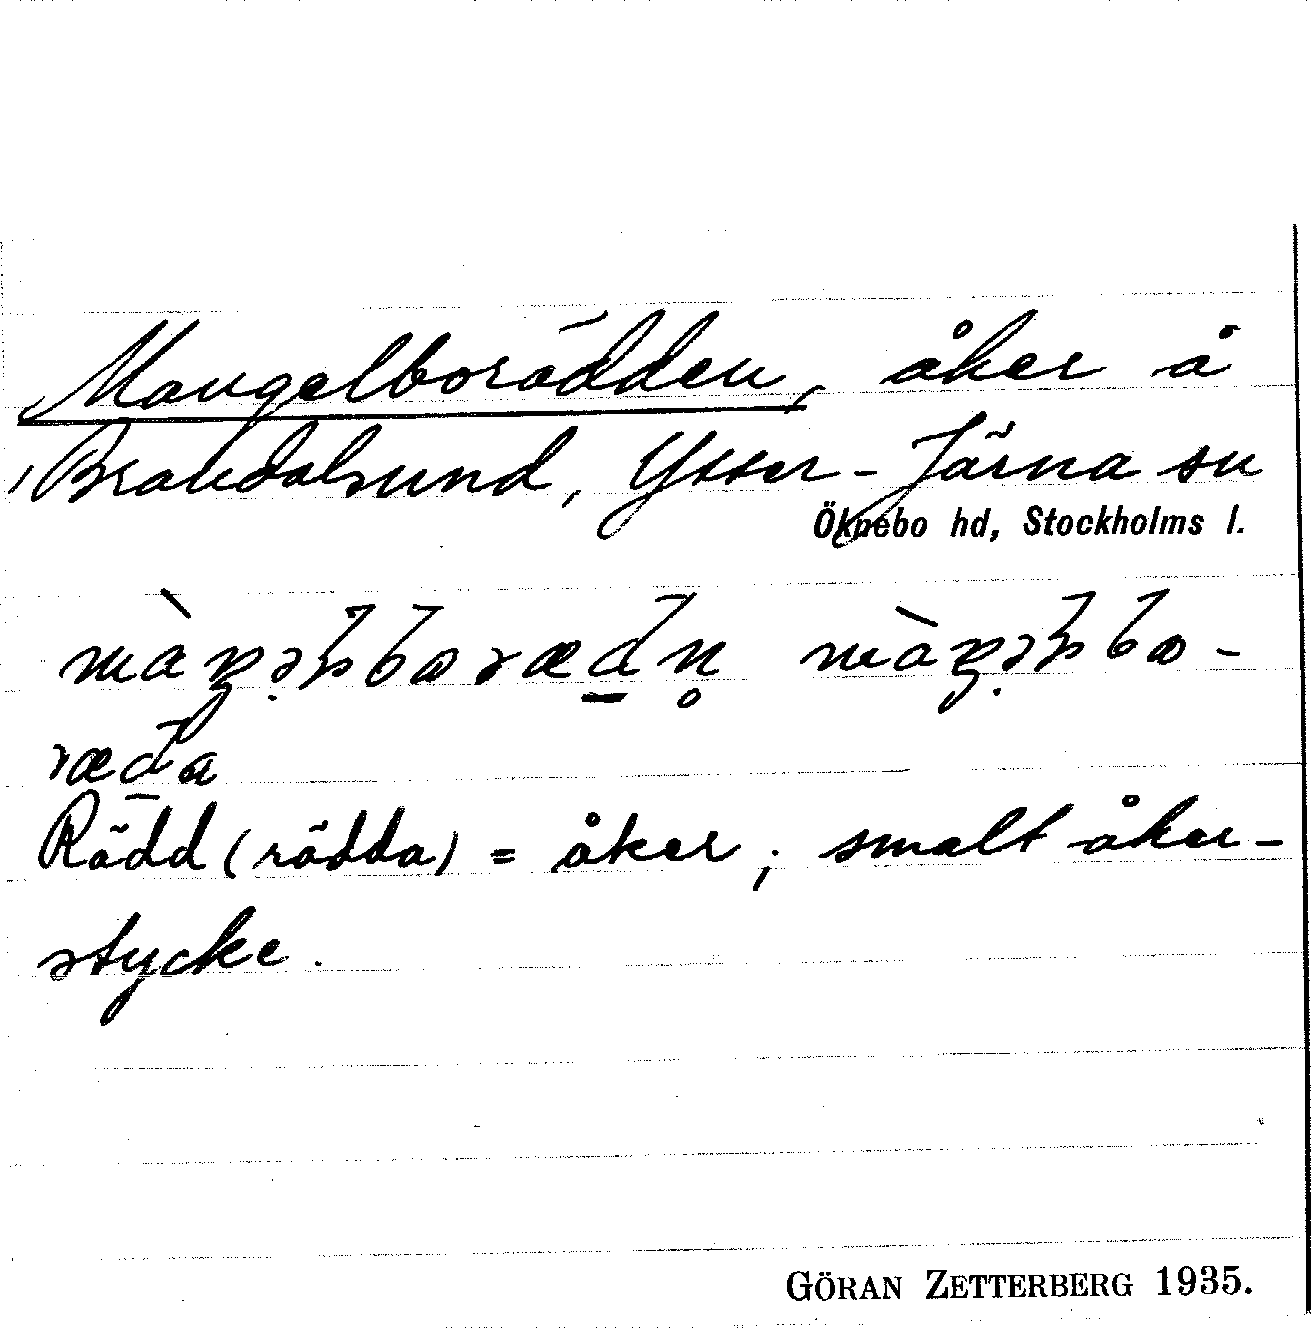 Mangelborädden, åker å
Brandalsund, Ytter-Järna sn
Öknebo hd, Stockholms l.
Rädd (rädda) = åker; smalt åker-
stycke.
GÖRAN ZETTERBERG 1935.